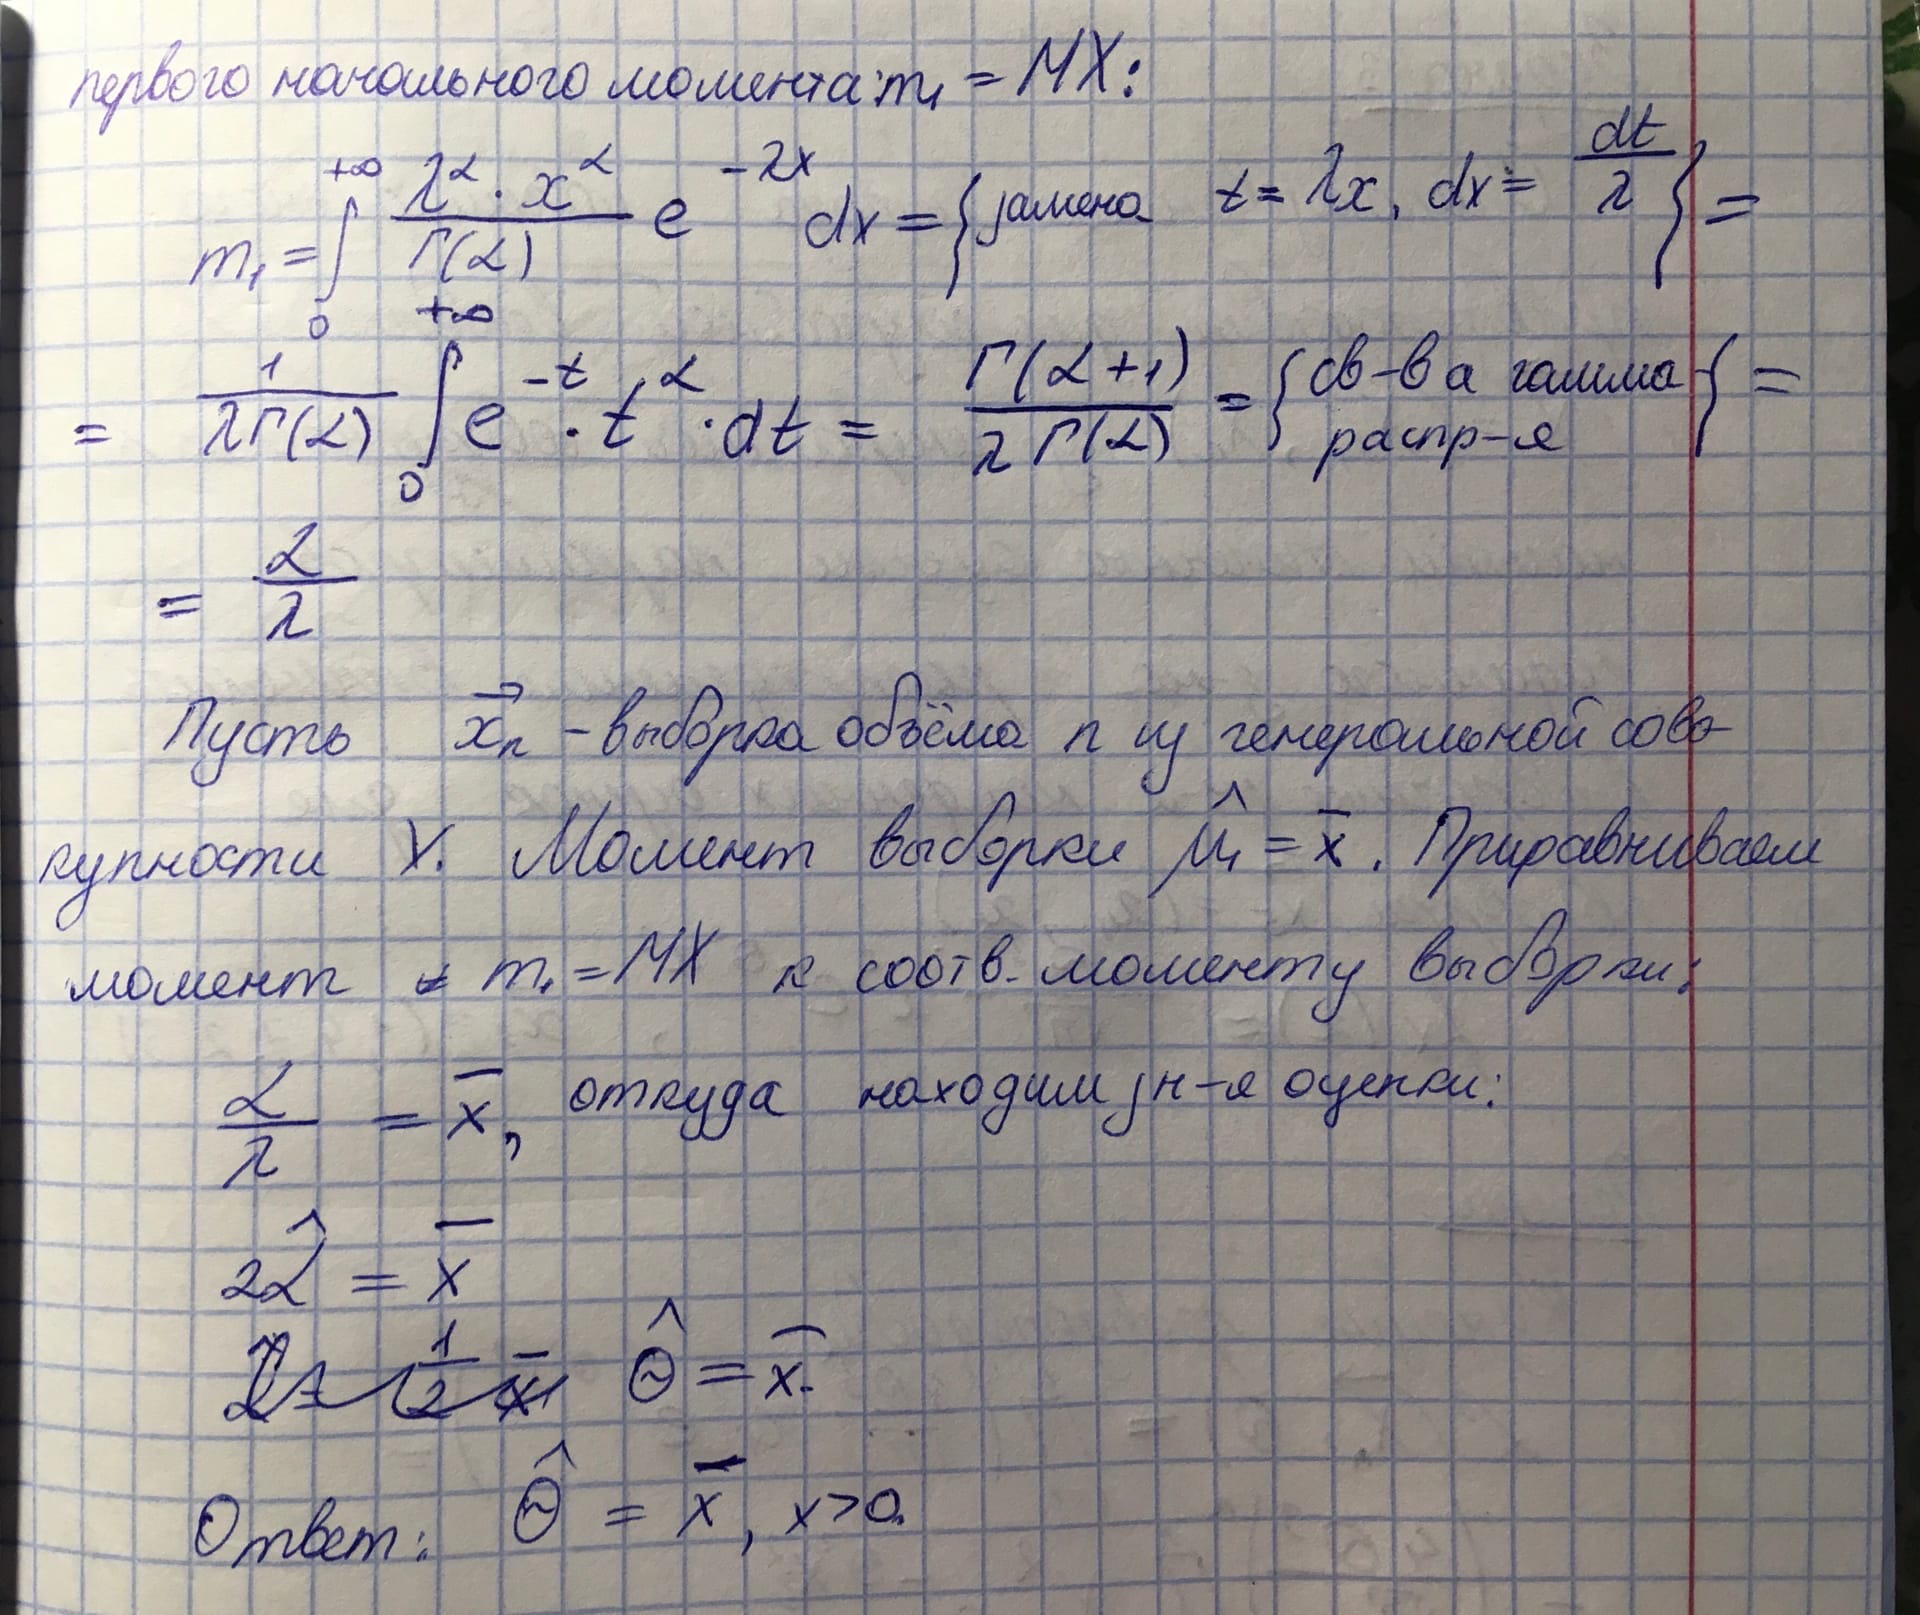 первого начального момента: m₁ = MX:
m₁ = ∫₀^{+∞} (λ^α · x^α)/Γ(α) e^{-λx} dx = {замена t = λx, dx = dt/λ} =
= 1/(λΓ(α)) ∫₀^{+∞} e^{-t} · t^α · dt = Γ(α+1)/(λΓ(α)) = {св-ва гамма распр-я} =
= α/λ
Пусть x⃗ₙ – выборка объёма n из генеральной сово-
купности X. Момент выборки μ̂₁ = x̄. Приравниваем
момент m₁ = MX к соотв. моменту выборки:
α/λ = x̄, откуда находим зн-я оценки:
2α̂ = x̄
θ̂ = x̄.
Ответ: θ̂ = x̄, x>0.